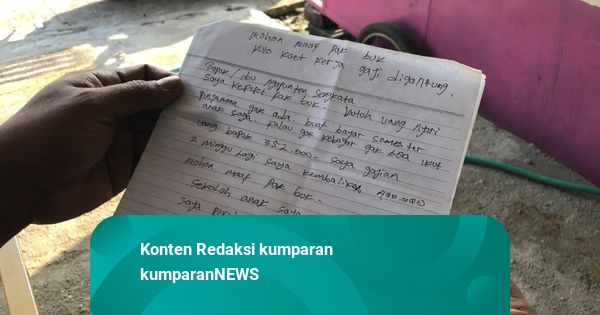 mohon maaf pak buk
kulo kaet kerja gaji digantung.
Bapak/ibu ngapunten sengkata
saya kepepet pak buk. butuh uang nyari
pinjaman gak ada. buak bayar semester
anak saya kalau gak kebayar gak bisa ikut
uang bapak 352.000- saya gajian
2 minggu lagi saya kembalikan 400.000
mohon maaf pak buk.
sekolah anak saya
saya
Konten Redaksi kumparan
kumparanNEWS